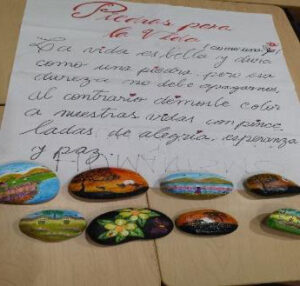 Piedras para
la Vida
"La vida es bella y dura
como una piedra, pero esa
dureza no debe apagarnos,
al contrario démosle color
a nuestras vidas con pince
ladas de alegria, esperanza
y paz